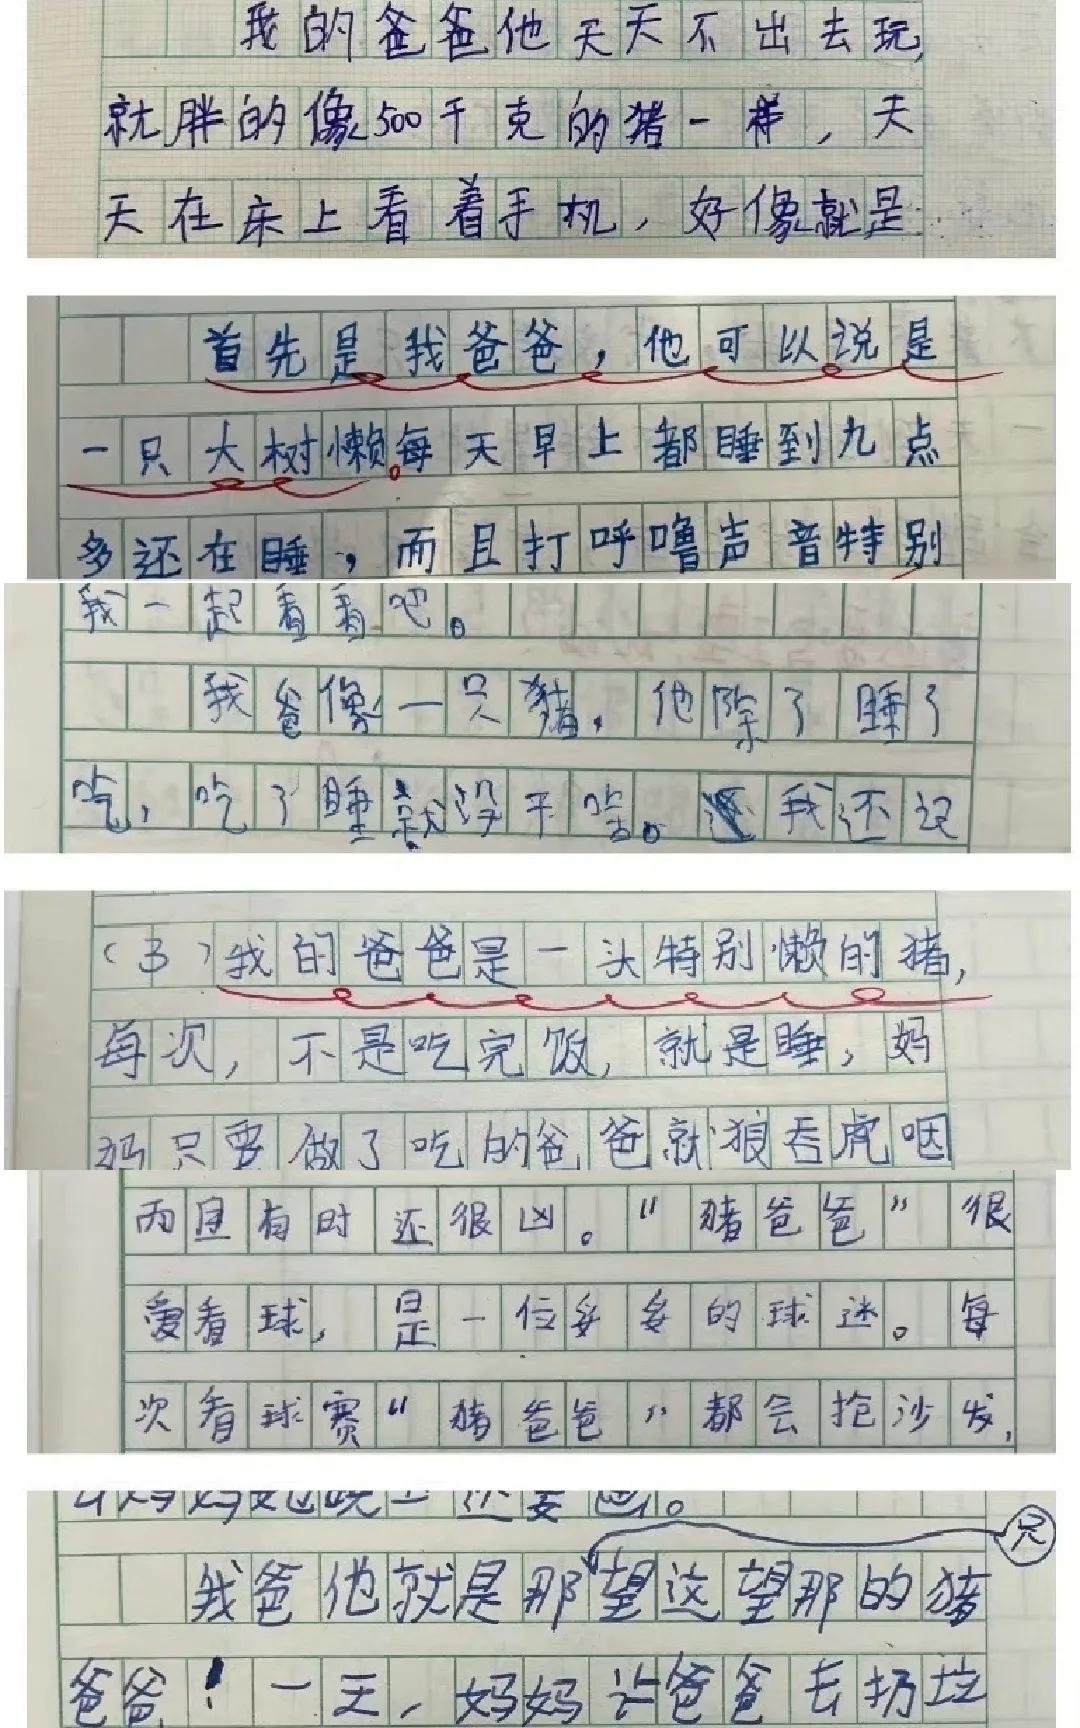 我的爸爸他天天不出去玩,
就胖的像500千克的猪一样，天
天在床上看着手机，好像就是
首先是我爸爸，他可以说是
一只大树懒。每天早上都睡到九点
多还在睡，而且打呼噜声音特别
我一起看看吧。
我爸像一只猪，他除了睡了
吃，吃了睡就没干啥。我还记
(3)我的爸爸是一头特别懒的猪,
每次，不是吃完饭，就是睡，妈
妈只要做了吃的爸爸就狼吞虎咽
而且有时还很凶。“猪爸爸”很
爱看球，是一位妥妥的球迷。每
次看球赛“猪爸爸”都会抢沙发,
我爸他就是那只望这望那的猪
爸爸！一天，妈妈让爸爸去扔垃